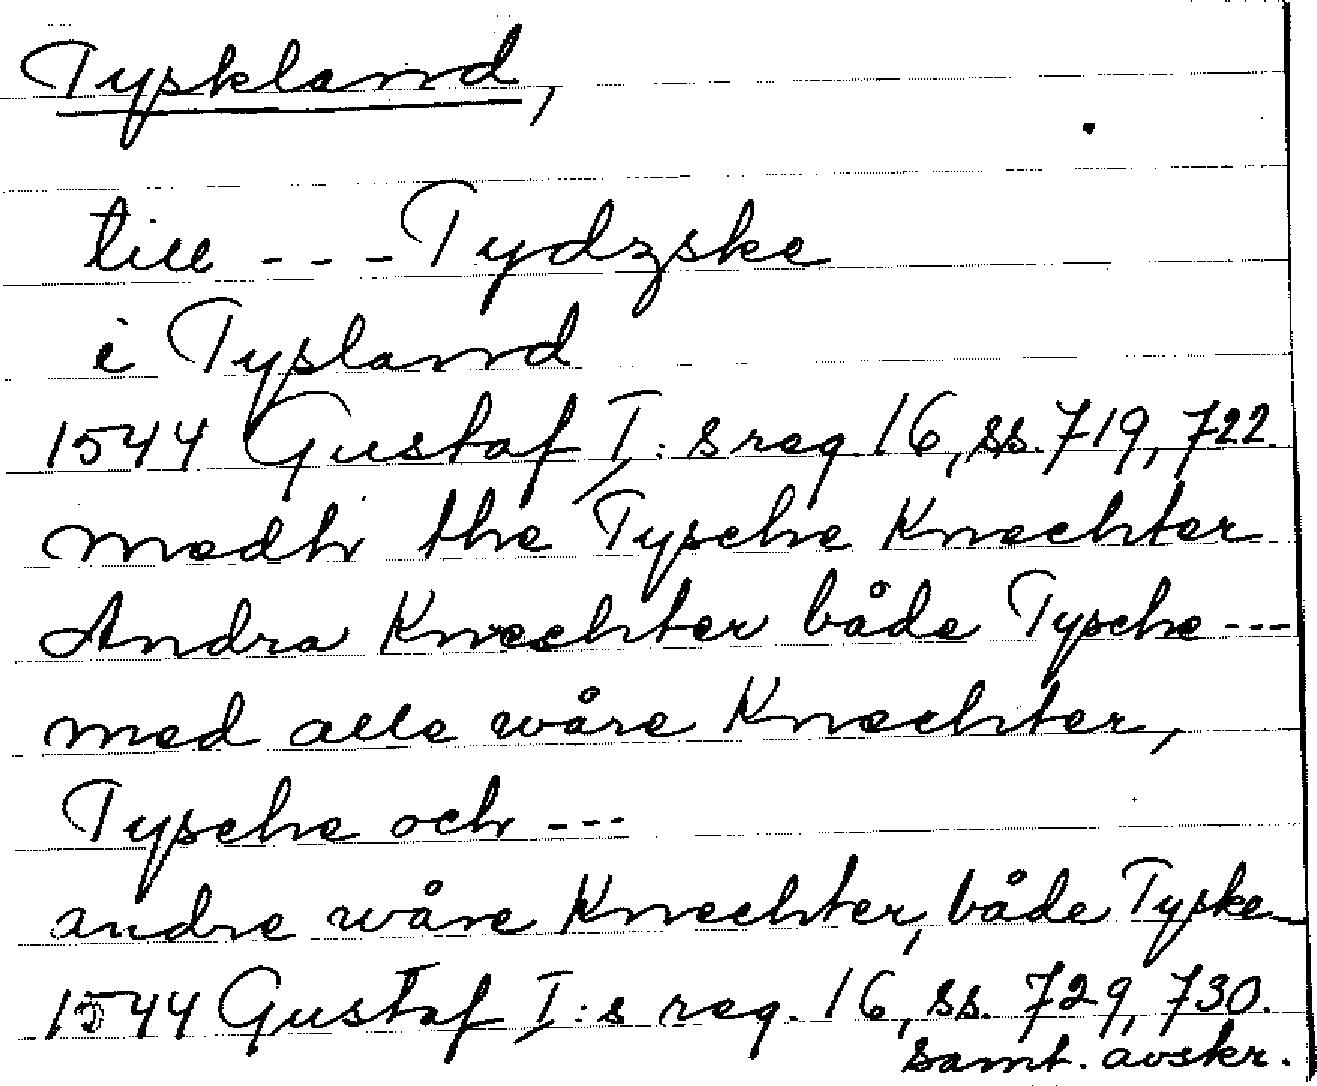 Tyskland,
till - - - Tydzske
i Tysland
1544 Gustaf I:s reg. 16, ss. 719, 722.
medh the Tysche Knechter
Andra Knechter både Tysche ---
med alle wåre Knechter,
Tysche och ---
andre wåre Knechter, både Tyske_
1544 Gustaf I:s reg. 16, ss. 729, 730.
samt. avskr.